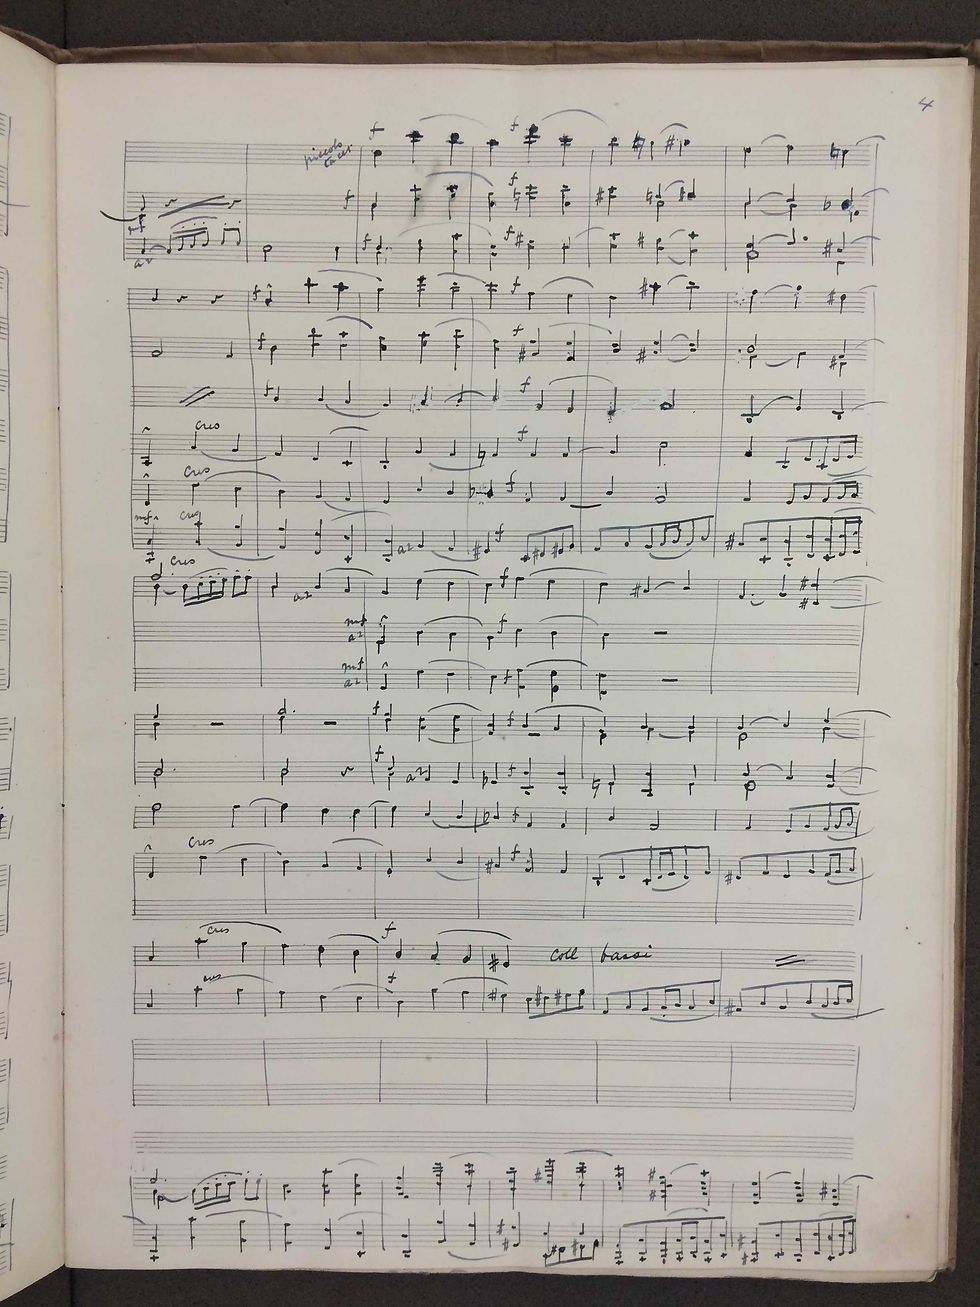 4
piccolo
tacet
f
f
f
f
mf
f
f
a2
f
f
f
f
f
f
cres
f
cres
f
mf
cres
a2
f
cres
a2
f
mf
a2
f
mf
a2
f
f
f
f
a2
f
f
cres
f
cres
f
coll bassi
cres
f